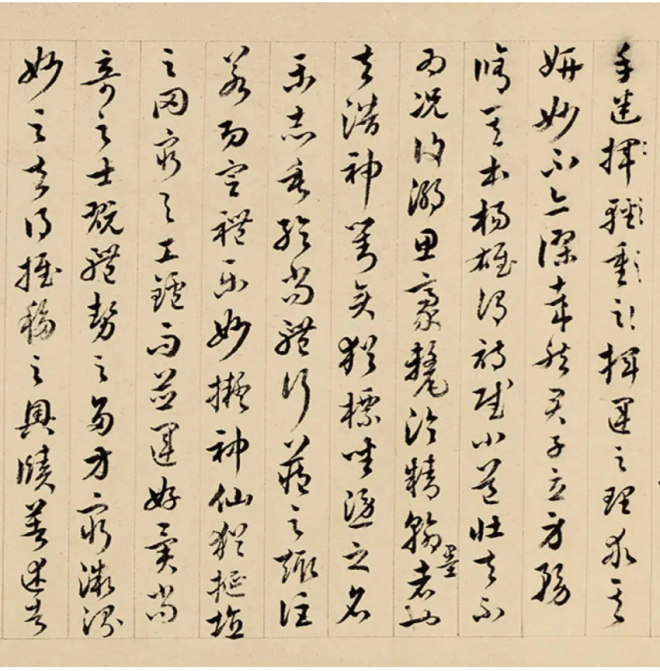 手迷揮輕重揮運之理求其
妍妙不亦謬哉然君子立身務
脩其本楊雄謂詩賦小道壯夫不
為況復溺思豪氂淪精翰墨者也
夫潛神對弈猶標坐隱之名
樂志垂綸尚體行藏之趣詎
若功宣禮樂妙擬神仙猶挻埴
之罔窮與工鑪而並運好異尚
奇之士翫體勢之多方窮微測
妙之夫得推移之奧賾著述者